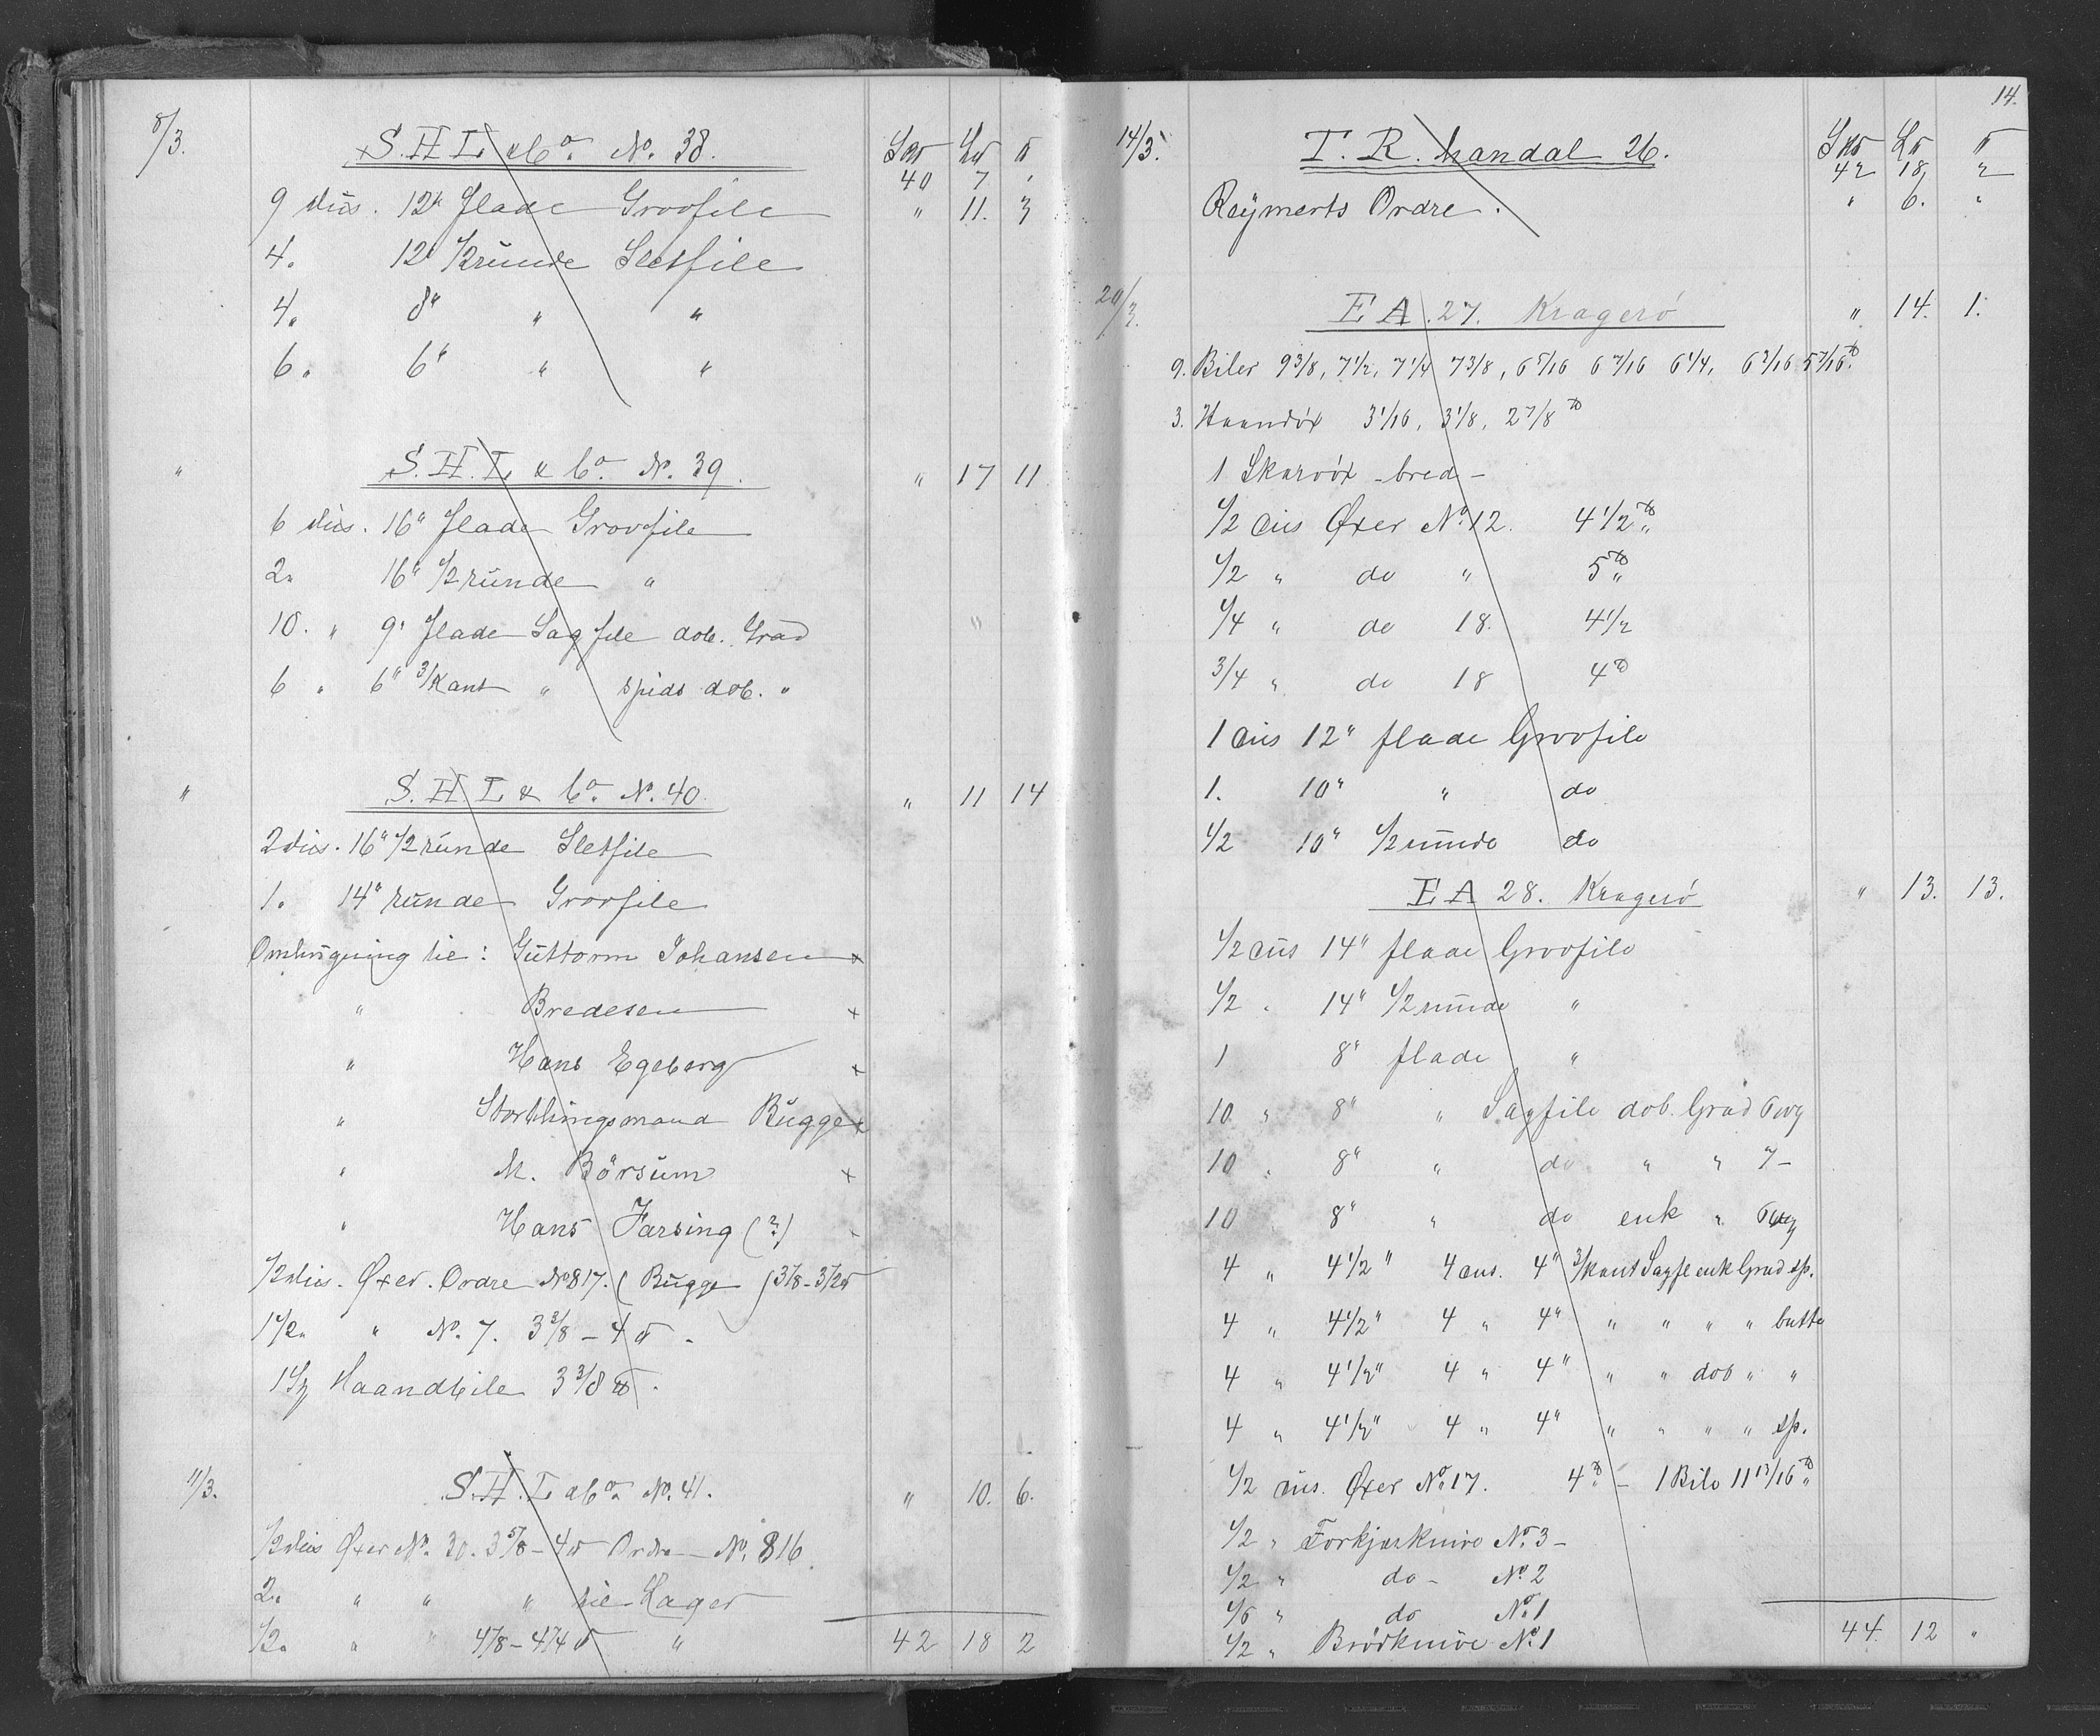 8/3. S. H. L. & Co. No. 38. Sk℔ L℔ ℔
40 7 "
9 dus. 12" flade Grovfile " 11. 3
4. 12" 1/2runde Sletfile
4. 8" " "
6. 6" " "
" S. H. L. & Co. No. 39. " 17 11
6 dus. 16" flade Grovfile
2. 16" 1/2 runde "
10. " 9" flade Sagfile dob. Grad
6 " 6" 3/kant " spids dob. "
" S. H. L. & Co. No. 40. " 11 14
2 dus. 16" 1/2 runde Sletfile
1. 14" runde Grovfile
Ombugning til: Guttorm Johansen x
" Bredesen x
" Hans Egeberg x
" Storthingsmand Bugge x
" M. Börsum x
" Hans Farsing (?) x
1/2 dus. Øxer. Ordre No 817. (Bugge) 3 1/8 - 3 1/2 ℔
1 1/2 " " No. 7. 3 3/8 - 4 ℔.
1 Haandbile 3 3/8 ℔.
11/3. S. H. L. & Co. No. 41. " 10. 6.
1/2 dus Øxer No. 30. 3 5/8 - 4 ℔ Ordre No. 816.
2. " " " til Lager
1/2. " " 4 1/8 - 4 1/4 ℔ " 42 18 2
14.
14/3. T. R. Mandal 26. Sk℔ L℔ ℔
42 18, 2
Reymerts Ordre. " 6. "
20/3. E A. 27. Kragerö " 14. 1.
9. Biler 9 3/8, 7 1/2, 7 1/4 7 3/8, 6 5/16 6 7/16 6 1/4, 6 3/16 5 7/16 ℔.
3. Haandöx 3 1/16, 3 1/8, 2 7/8 ℔
1 Skarvöx - bred -
1/2 dus Øxer No. 12. 4 1/2 ℔
1/2 " do " 5 ℔
1/4 " do 18. 4 1/2
3/4 " do 18 4 ℔
1 dus 12" flade Grovfile
1. 10" " do
1/2 10" 1/2 runde do
E A 28. Kragerö " 13. 13.
1/2 dus 14" flade Grovfile
1/2 . 14" 1/2 runde "
1 8" flade "
10 " 8" " Sagfile dob. Grad
10 " 8" " do " " 7 -
10 8" " do enk "
4 " 4 1/2" 4 dus. 4" 3/kant Sagfl enk Grad sp.
4 " 4 1/2" 4 " 4" " " " " butte
4 " 4 1/2" 4 " 4" " " dob " "
4 " 4 1/2" 4 " 4" " " " " sp.
1/2 dus. Øxer No. 17. 4 ℔ - 1 Bile 11 13/16 ℔
1/2 " Forkjærknive No. 3 -
1/2 " do - No. 2
1/6 " do No. 1
1/2 " Brödknive No. 1 44. 12 "